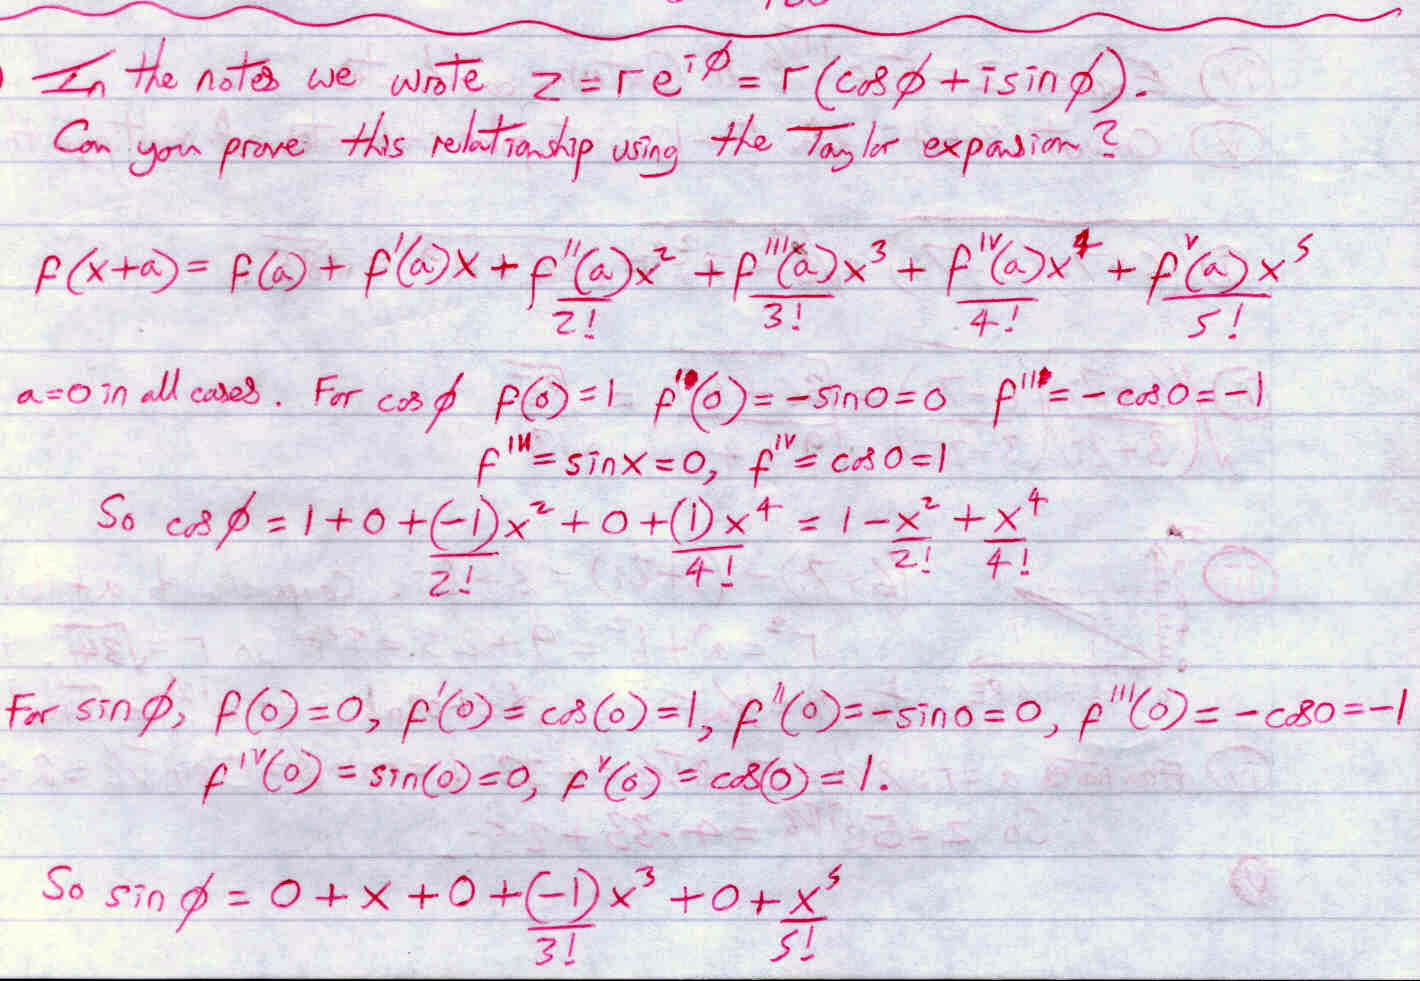 In the notes we wrote z = re^{iϕ} = r(cosϕ + isinϕ).
Can you prove this relationship using the Taylor expansion?
f(x+a) = f(a) + f'(a)x + f''(a)x²/2! + f'''(a)x³/3! + f^{IV}(a)x⁴/4! + f^{V}(a)x⁵/5!
a=0 in all cases. For cosϕ f(0)=1 f'(0)=-sin0=0 f''=-cos0=-1
f'''=sinx=0, f^{IV}=cos0=1
So cosϕ = 1+0+(-1)x²/2! + 0 + (1)x⁴/4! = 1 - x²/2! + x⁴/4!
For sinϕ, f(0)=0, f'(0)=cos(0)=1, f''(0)=-sin0=0, f'''(0)=-cos0=-1
f^{IV}(0)=sin(0)=0, f^{V}(0)=cos(0)=1.
So sinϕ = 0+x+0+(-1)x³/3! + 0 + x⁵/5!